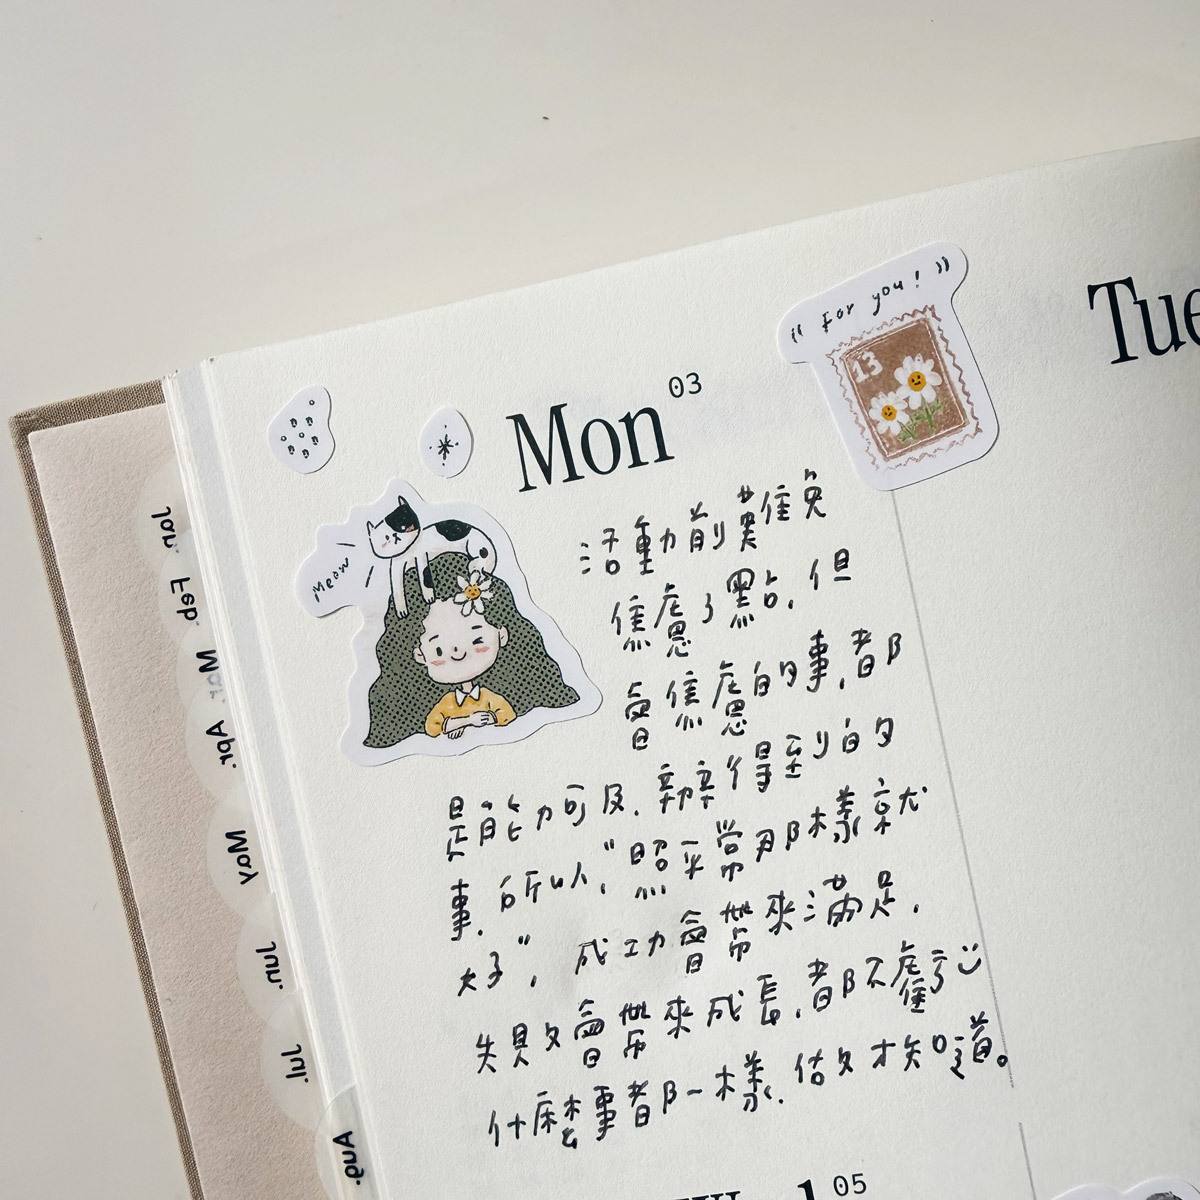 “ For you! ”
13
Tue
Mon 03
Meow
活動前難免
焦慮了點，但
會焦慮的事，都
是能力可及，辦得到的
事，所以，“照平常那樣就
好”，成功會帶來滿足，
失敗會帶來成長，都不虧
什麼事都一樣，做了才知道。
05
Jan.
Feb.
Mar.
Apr.
May
Jun.
Jul.
Aug.